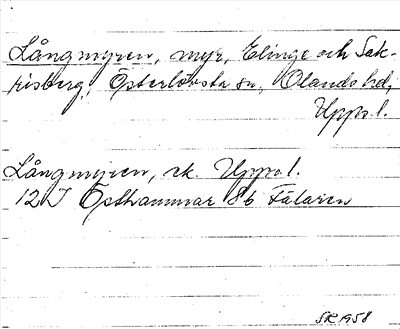 Långmyren, myr, Elinge och Sak-
risberg, Österlövsta sn, Olands hd,
Upps. l.
Långmyren, ek. Upps. l.
12 I Östhammar 8b Fälaren
SR 1958